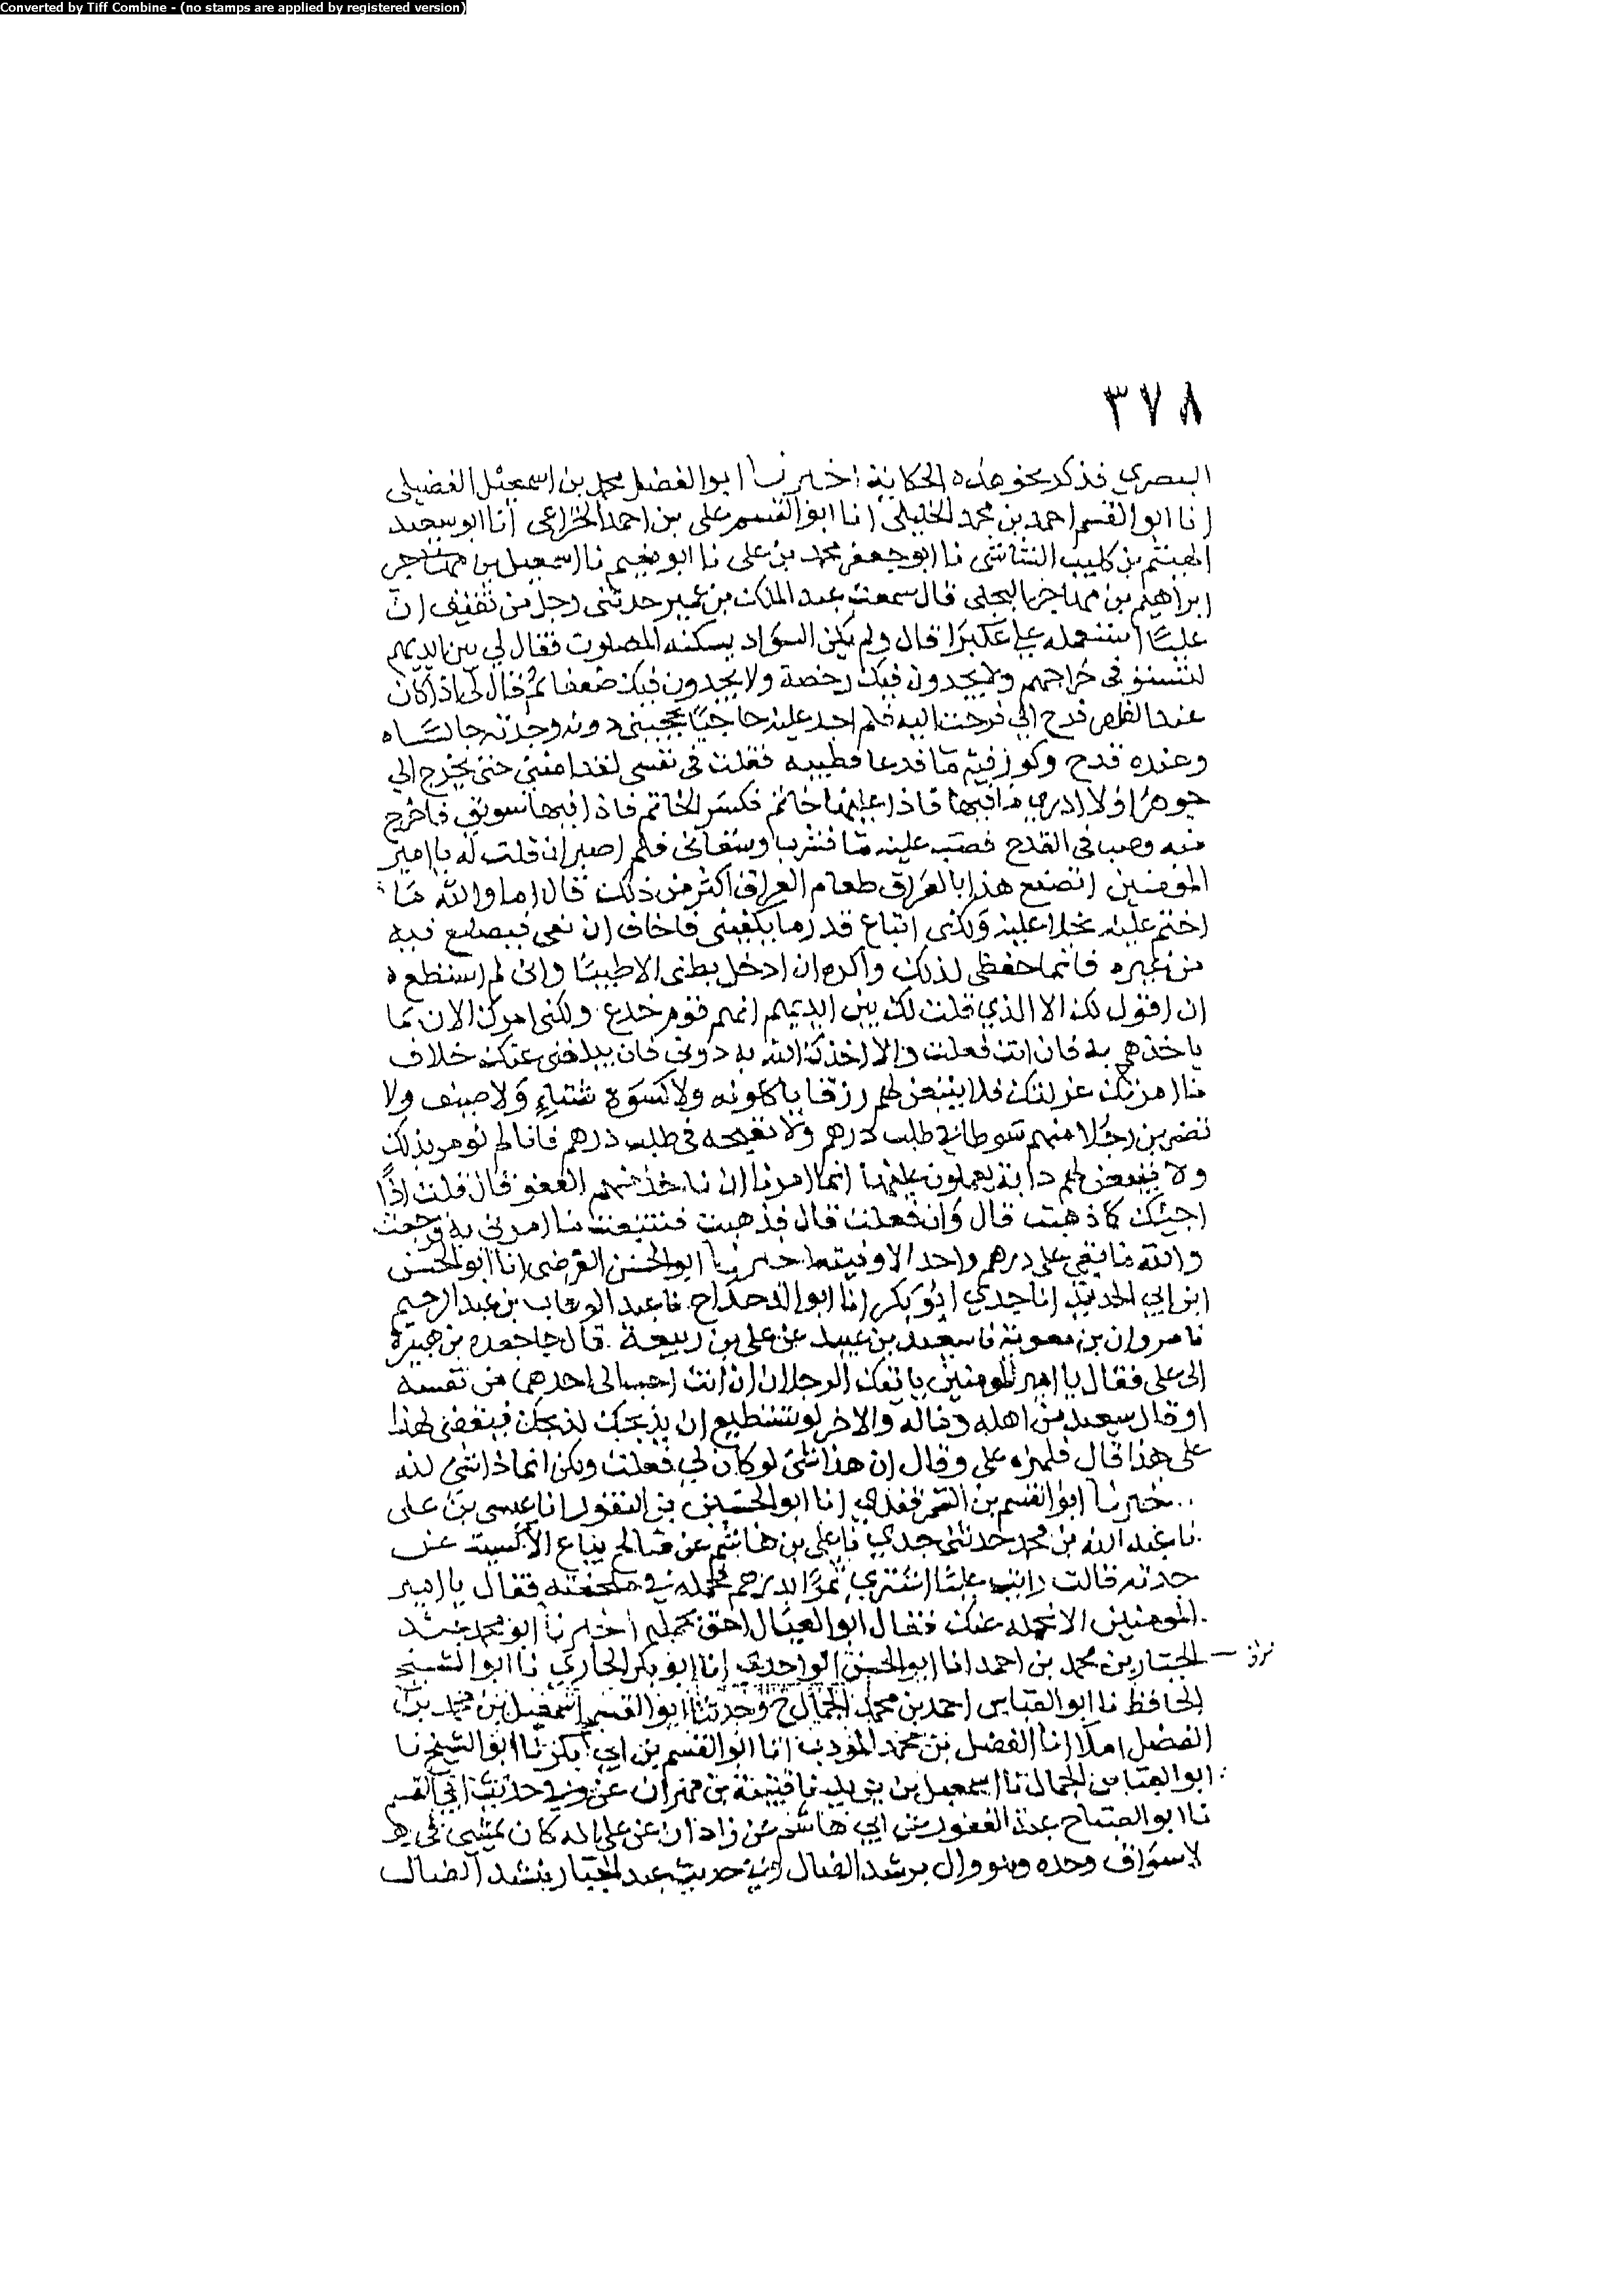 Converted by Tiff Combine - (no stamps are applied by registered version)
٣٧٨
البصري فذكر نحو هذه الحكاية اخبرنا ابو الفضل محمد بن اسمعيل الفضيلي
انا ابو القسم احمد بن محمد الخليلي انا ابو القسم علي بن احمد الخزاعي انا ابو سعيد
الهيثم بن كليب الشاشي نا ابو جعفر محمد بن علي نا ابو نعيم نا اسمعيل بن مهاجر
ابراهيم بن مهاجر البجلي قال سمعت عبد الملك بن عمير حدثني رجل من ثقيف ان
عليا استعمله على عكبرا قال ولم يكن السواد يسكنه المصلون فقال لي بين ايديهم
لتستوفي خراجهم ولا يجدون فيك رخصة ولا يجدون فيك ضعفا ثم قال لي اذا كان
عند الظهر فرح الي فرحت اليه فلم اجد عليه حاجبا يحجبني دونه وجدته جالسا
وعنده قدح وكوز فيه ما فدعا بطيبه فقلت في نفسي لقد امنني حتى يخرج الي
جوهرا ولا ادري ما فيها فاذا عليها خاتم فكسر الخاتم فاذا فيها سويق فاخرج
منه وصب في القدح فصب عليه ما فشرب وسقاني فلم اصبر ان قلت له يا امير
المؤمنين اتصنع هذا بالعراق طعام العراق اكثر من ذلك قال اما والله ما
اختم عليه بخلا عليه ولكني ابتاع قدر ما يكفيني فاخاف ان نمى فيصنع فيه
من غيره فانما حفظي لذلك واكره ان ادخل بطني الا طيبا واني لم استطع
ان اقول لك الا الذي قلت لك بين ايديهم انهم قوم خدع ولكني امرك الان بما
ياخذهم به فان انت فعلت والا اخذك الله به دوني فان يبلغني عنك خلاف
ما امرتك عزلتك فلا تبيعن لهم رزقا ياكلونه ولا كسوة شتاء ولا صيف ولا
تضربن رجلا منهم سوطا في طلب درهم ولا تقيمه في طلب درهم فانا لم نومر بذلك
ولا تبيعن لهم دابة يعملون عليها انما امرنا ان ناخذ منهم العفو قال قلت اذا
اجيئك كما ذهبت قال وان فعلت قال فذهبت فتتبعت ما امرني به فرجعت
والله ما بقي علي درهم واحد الا وفيته اخبرنا ابو الحسن الفرضي انا ابو الحسن
ابن ابي الحديد انا جدي ابو بكر انا ابو الدحداح نا عبد الوهاب بن عبد الرحيم
نا مروان بن معوية نا سعيد بن عبيد عن علي بن ربيعة قال جا جعده بن هبيرة
الى علي فقال يا امير المومنين ياتيك الرجلان ان انت احب الى احدهما من نفسه
او قال سعيد من اهله وماله والاخر لو يستطيع ان يذبحك لذبحك فتقضي لهذا
على هذا قال فلهزه علي وقال ان هذا شي لو كان لي فعلت ولكن انما ذا شي لله
اخبرنا ابو القسم بن السمرقندي انا ابو الحسين بن النقور انا عيسى بن علي
نا عبد الله بن محمد حدثني جدي نا علي بن هاشم عن صالح بياع الاكسية عن
جدته قالت رايت عليا اشترى تمرا بدرهم فحمله في ملحفته فقال يا امير
المومنين الا نحمله عنك فقال ابو العيال احق بحمله اخبرنا ابو محمد
الجبار بن محمد بن احمد انا ابو الحسن الواحدي انا ابو بكر الحارثي نا ابو الشيخ
الحافظ نا ابو العباس احمد بن محمد الجمال ح وحدثنا ابو القسم اسمعيل بن محمد بن
الفضل املا انا الفضل بن محمد المؤدب انا ابو القسم بن ابي بكر نا ابو الشيخ نا
ابو العباس الجمال نا اسمعيل بن يزيد نا قتيبة بن مهران عن وفي حديث ابي القسم
نا ابو الصباح عبد الغفور عن ابي هاشم عن زاذان عن علي انه كان يمشي في
الاسواق وحده وهو وال يرشد الضال وفي حديث عبد الجبار ينشد الضال